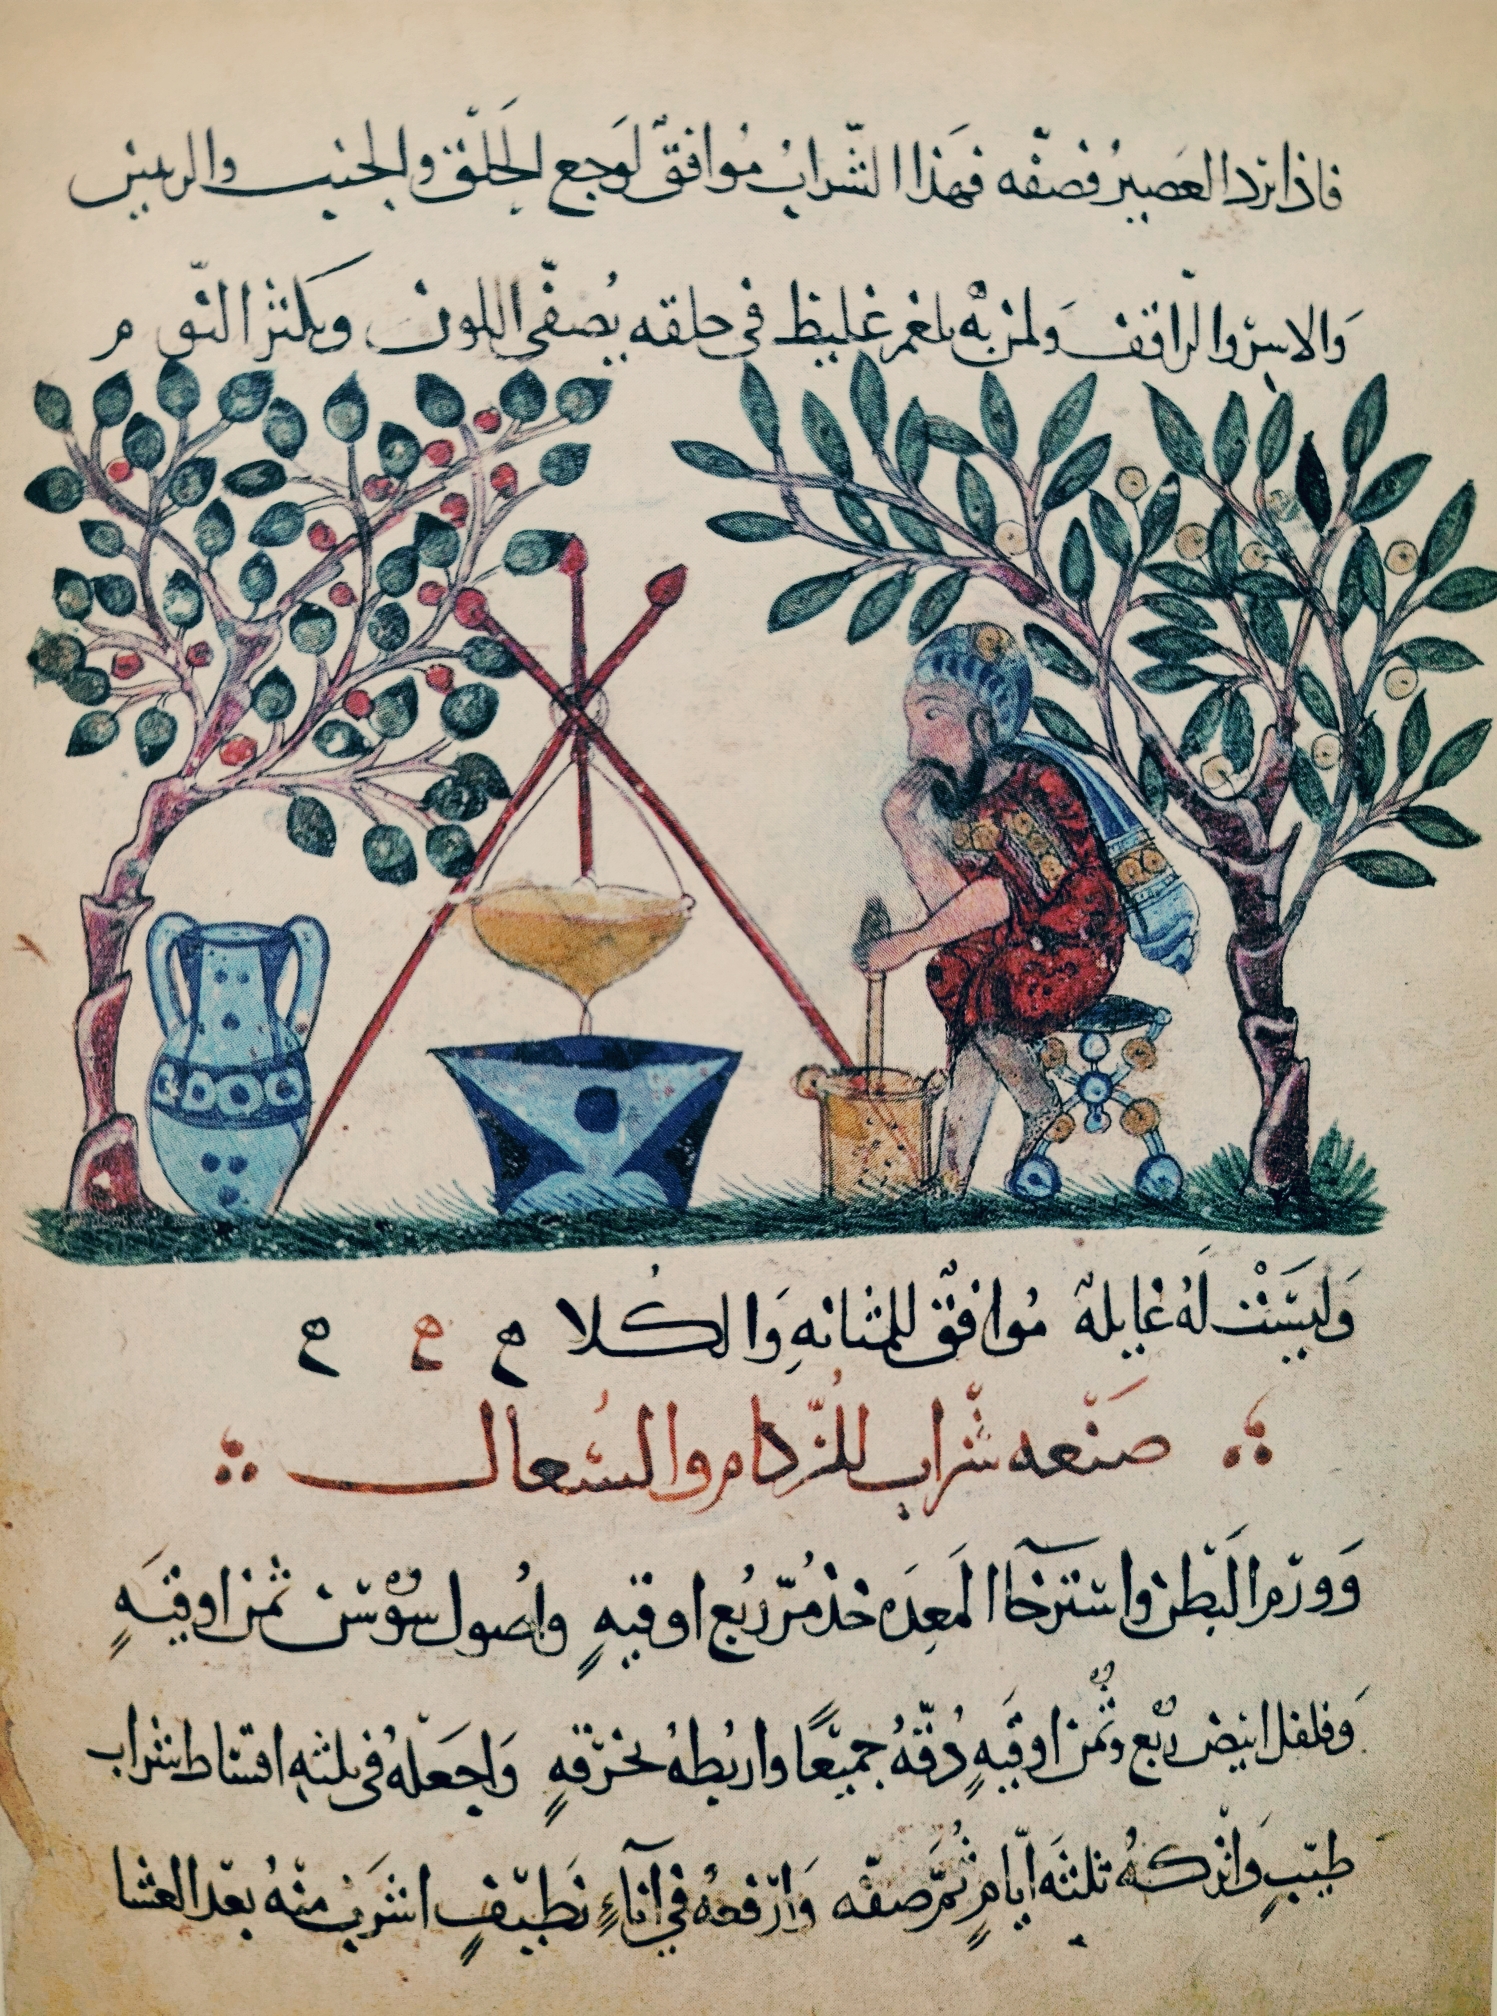 فاذا برد العَصيرُ فصفّه فهَذا الشّرابُ مُوافقٌ لوَجع الحَلْق والجنب والريين
وَالاسر والرّاقف وَلمن بهِ بلغم غليظ فى حلقه يُصفّى اللون وَيكثر النّوم
وَليسَتْ لهُ غايلة مُوافقٌ للمثانهِ وَالكُلا
صَنْعه شّراب للزّكام والسُعال
وَورم البَطن واسترخآ المَعِدَه خذ مُرّ ربُع اوقيهٍ واصُول سوُسن ثمن اوقيَهٍ
وَفلفل ابيض ربُع وثُمن اوقيَهٍ دُقّهُ جميعًا واربُطهُ بخرقهٍ وَاجعَلهُ فى ثلثهِ اقساط شراب
طيّبٍ وَاتْركهُ ثلثهَ ايّامٍ ثُمَّ صفّه وَارْفعهُ في انآءٍ نَظيفٍ اشرَب منْهُ بعدَ العشا